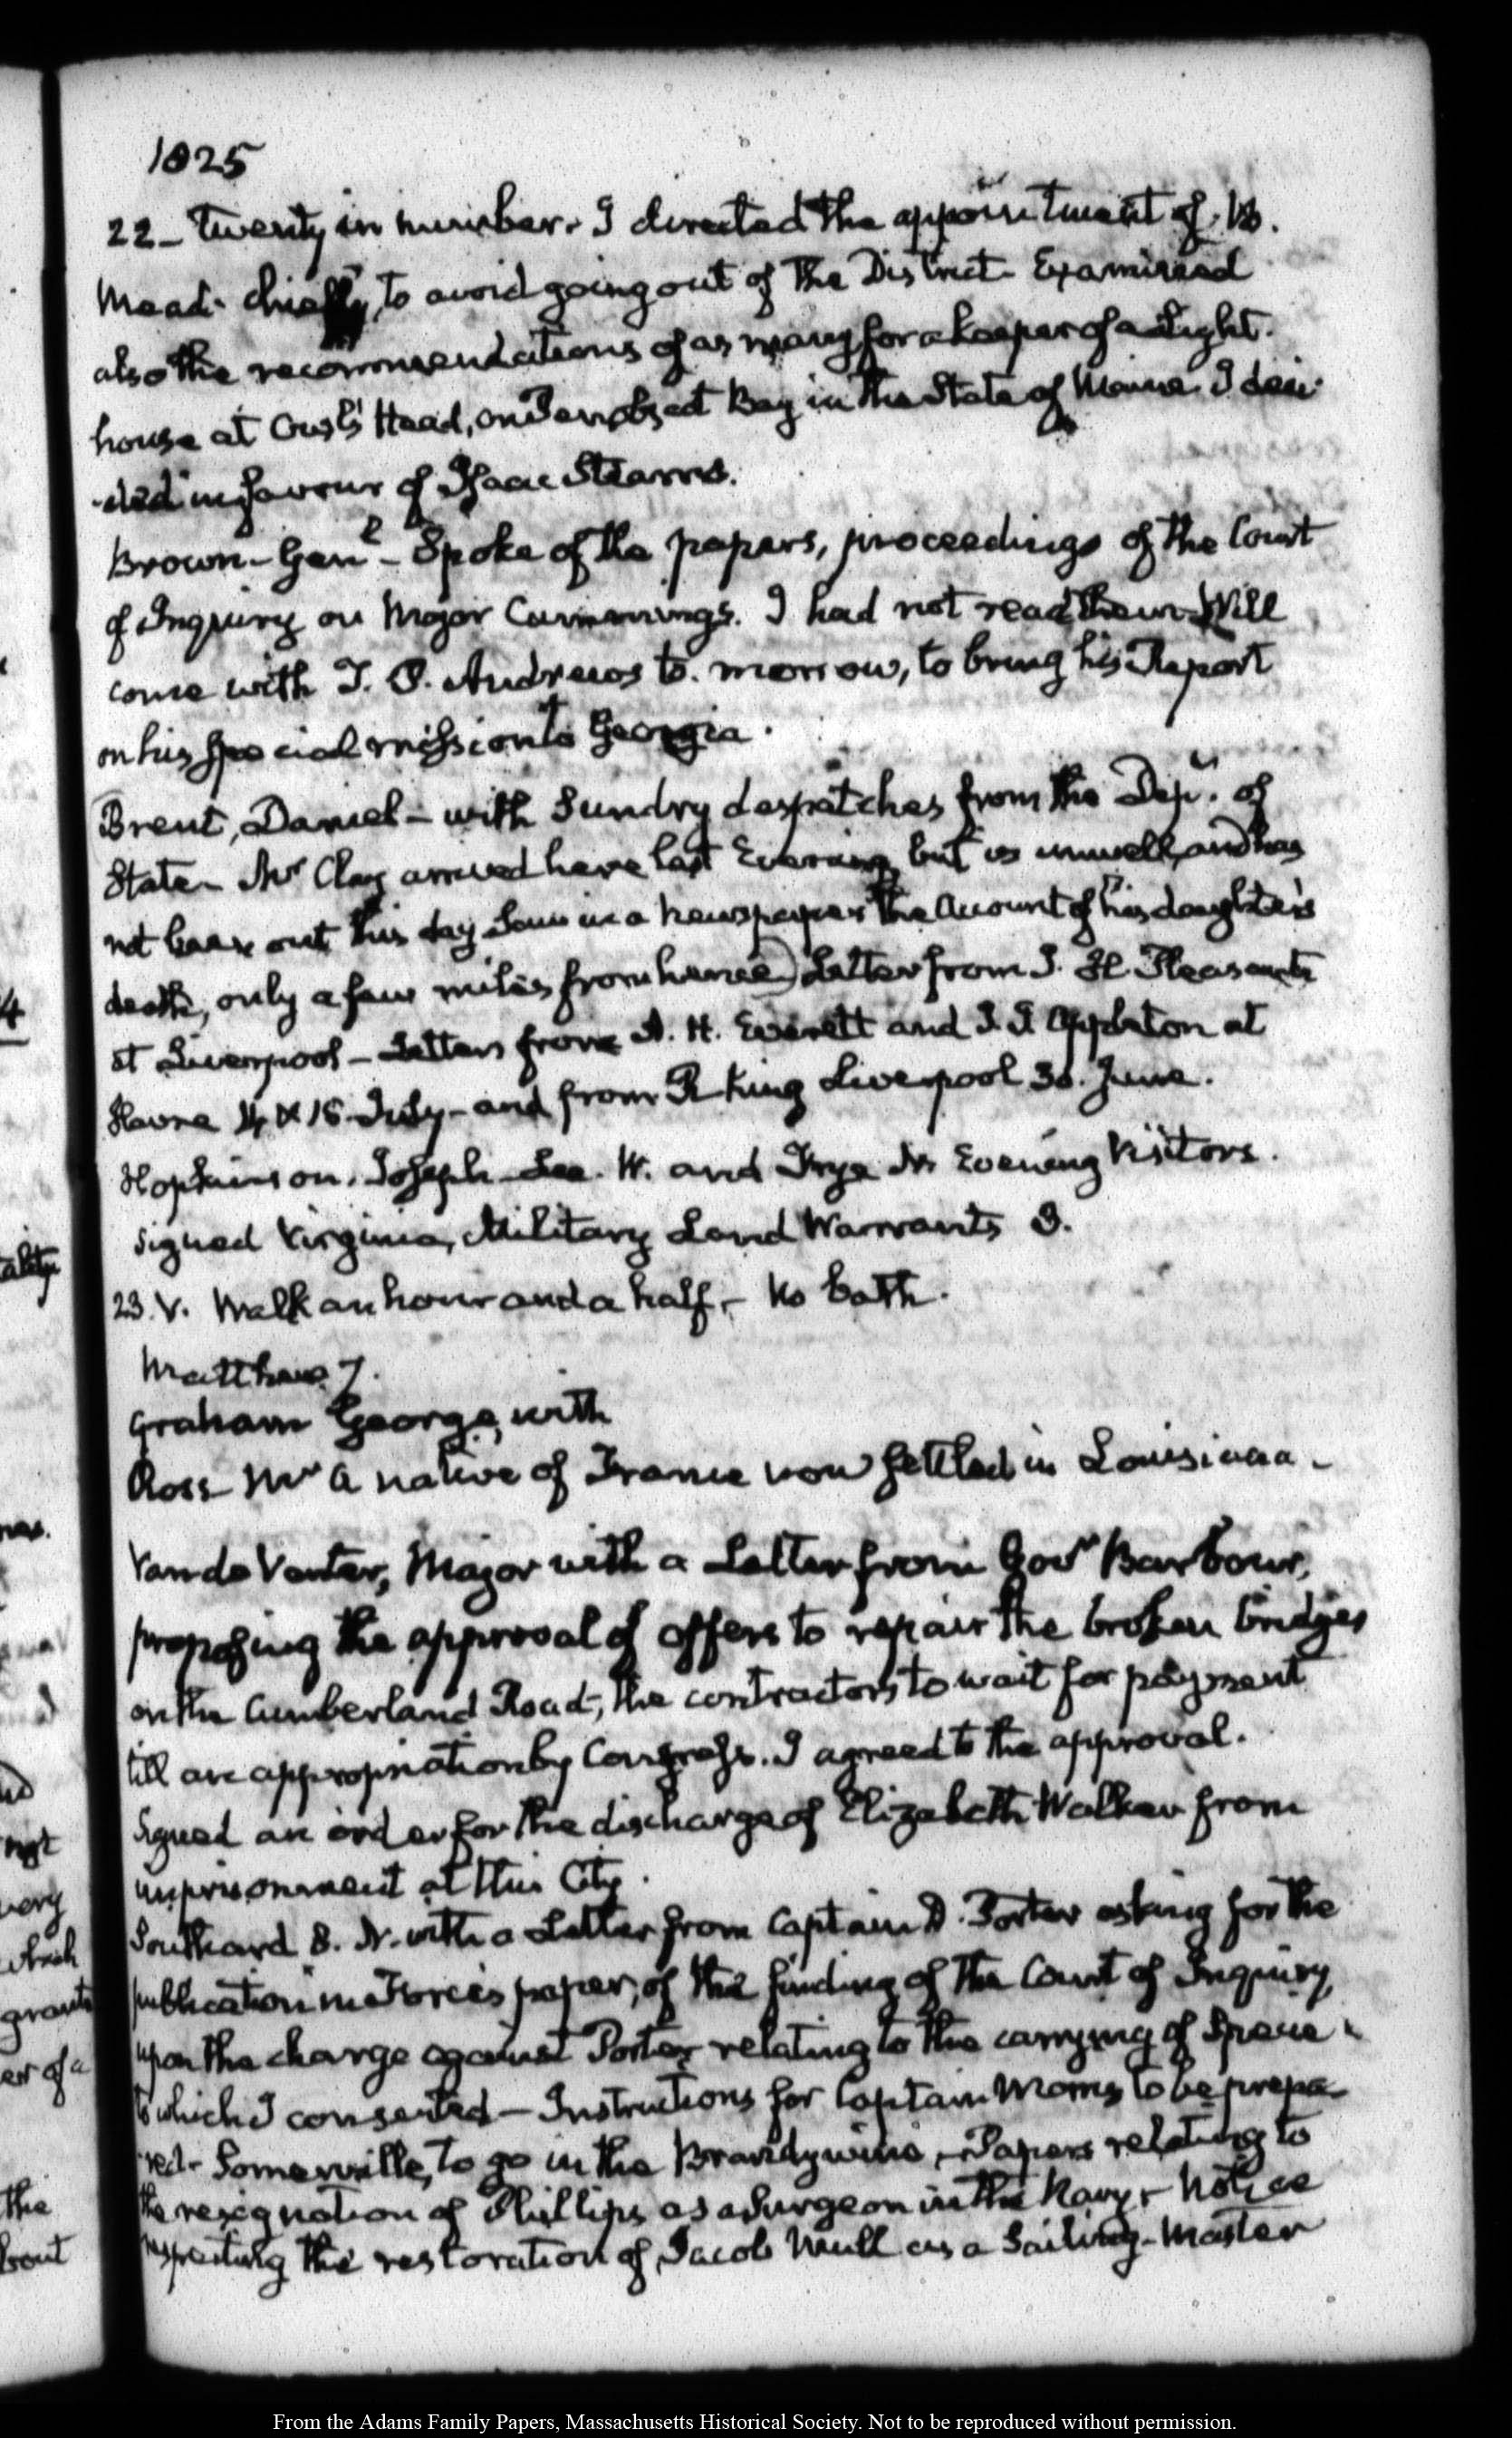 1825
22 – twenty in number. I directed the appointment of
Mead. chiefly, to avoid going out of the District – Examined
also the recommendations of as many for a keeper of a Light.
house at Owl's Head, on Penobscot Bay in the State of Maine. I deci-
-ded in favour of Isaac Stearns.
Brown – Gen.l – Spoke of the papers, proceedings of the Court
of Inquiry on Major Cummings. I had not read them. Will
come with T. P. Andrews to-morrow, to bring his Report
on his special mission to Georgia.
Brent, Daniel – with Sundry despatches from the Dep.t of
State – Mr Clay arrived here last Evening but is unwell, and has
not been out this day Saw in a Newspaper the Account of his daughter's
death, only a few miles from hence) Letter from J. H. Pleasants
at Liverpool – Letters from A. H. Everett and J. J. Appleton at
Havre 14 & 15 July – and from R King Liverpool 30. June.
Hopkinson. Joseph – Lee. W. and Frye Mr Evening Visitors.
Signed Virginia, Military Land Warrants 3.
23. V. Walk an hour and a half – No bath.
Matthew 7.
Graham George, with
Ross Mr a native of France now settled in Louisiana –
Van de Venter, Major with a Letter from Gov.r Barbour,
proposing the approval of offers to repair the broken bridges
on the Cumberland Road, the contractors to wait for payment
till an appropriation by Congress. I agreed to the approval.
Signed an order for the discharge of Elizabeth Walker from
imprisonment at this City.
Southard S. N. with a Letter from Captain D. Porter asking for the
publication in Force's paper, of the finding of the Court of Inquiry,
upon the charge against Porter relating to the carrying of Specie
to which I consented – Instructions for Captain Morris to be prepa-
-red – Somerville, to go in the Brandywine – Papers relating to
the resignation of Phillips as a Surgeon in the Navy – Notice
respecting the restoration of Jacob Mull as a Sailing-Master
From the Adams Family Papers, Massachusetts Historical Society. Not to be reproduced without permission.